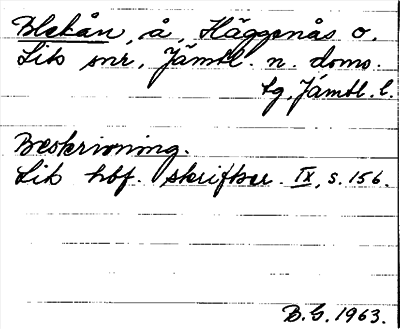 Blekån, å, Häggenås o.
Lik snr, Jämtl. n. doms.
tg, Jämtl. l.
Beskrivning.
Lik hbf. skrifter. IX, s. 156.
B.G. 1963.